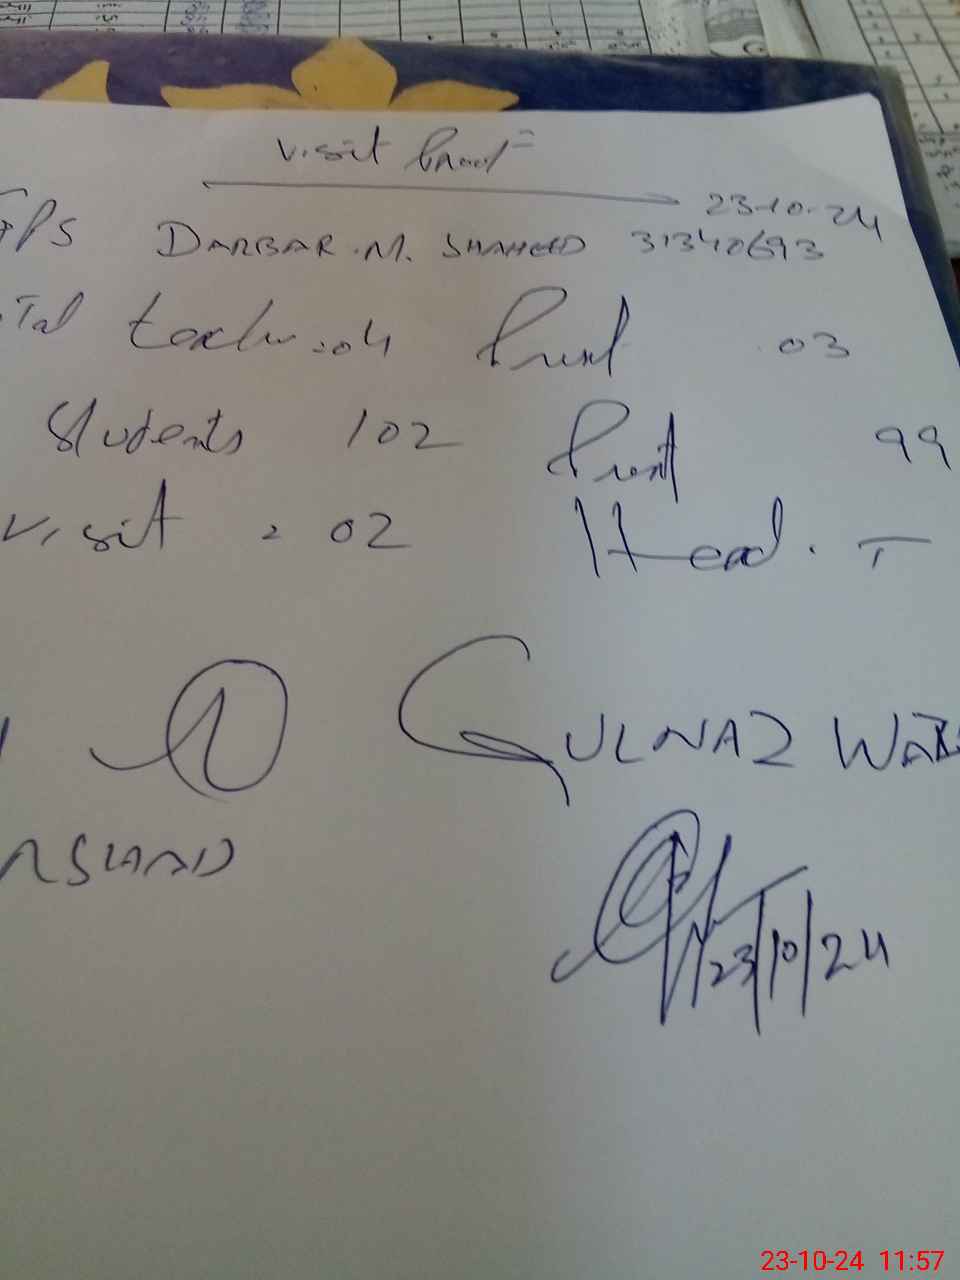 Visit Proof =
23-10-24
GPS DARBAR.M. SHAHEED 31340693
Total teacher = 04 Present 03
Students 102 Present 99
Visit = 02 Head. T
GULNAZ
ARSHAD
23/10/24
23-10-24 11:57